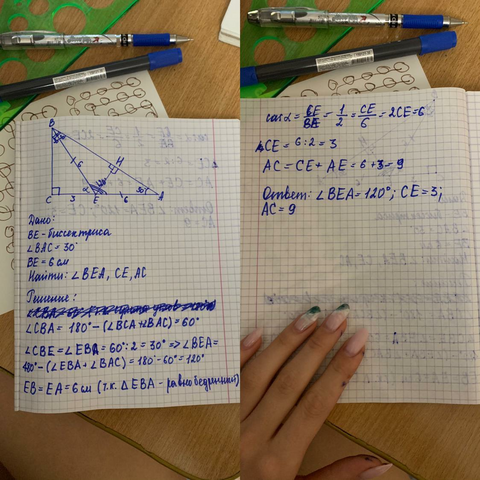 B
6
H
C
3
E
6
30°
A
Дано:
BE - биссектриса
∠BAC = 30°
BE = 6 см
Найти: ∠BEA, CE, AC
Решение:
∠CBA = 180° - (∠BCA + ∠BAC) = 60°
∠CBE = ∠EBA = 60°:2 = 30° => ∠BEA =
180° - (∠EBA + ∠BAC) = 180° - 60° = 120°
EB = EA = 6 см (т.к. △EBA - равнобедренный)
cos α = CE/BE = 1/2 = CE/6 = 2CE = 6
CE = 6:2 = 3
AC = CE + AE = 6 + 3 = 9
Ответ: ∠BEA = 120°; CE = 3;
AC = 9